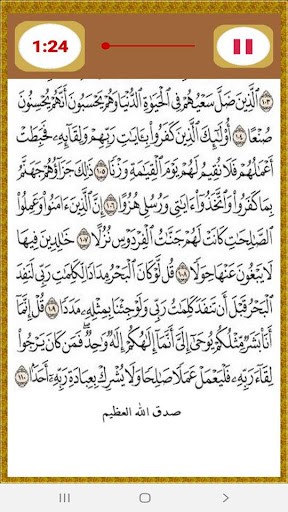 1:24
١٠٣
ٱلَّذِينَ ضَلَّ سَعْيُهُمْ فِي ٱلْحَيَوٰةِ ٱلدُّنْيَا وَهُمْ يَحْسَبُونَ أَنَّهُمْ يُحْسِنُونَ
صُنْعًا ١٠٤ أُو۟لَٰٓئِكَ ٱلَّذِينَ كَفَرُوا۟ بِـَٔايَٰتِ رَبِّهِمْ وَلِقَآئِهِۦ فَحَبِطَتْ
أَعْمَٰلُهُمْ فَلَا نُقِيمُ لَهُمْ يَوْمَ ٱلْقِيَٰمَةِ وَزْنًا ١٠٥ ذَٰلِكَ جَزَآؤُهُمْ جَهَنَّمُ
بِمَا كَفَرُوا۟ وَٱتَّخَذُوٓا۟ ءَايَٰتِي وَرُسُلِي هُزُوًا ١٠٦ إِنَّ ٱلَّذِينَ ءَامَنُوا۟ وَعَمِلُوا۟
ٱلصَّٰلِحَٰتِ كَانَتْ لَهُمْ جَنَّٰتُ ٱلْفِرْدَوْسِ نُزُلًا ١٠٧ خَٰلِدِينَ فِيهَا
لَا يَبْغُونَ عَنْهَا حِوَلًا ١٠٨ قُل لَّوْ كَانَ ٱلْبَحْرُ مِدَادًا لِّكَلِمَٰتِ رَبِّي لَنَفِدَ
ٱلْبَحْرُ قَبْلَ أَن تَنفَدَ كَلِمَٰتُ رَبِّي وَلَوْ جِئْنَا بِمِثْلِهِۦ مَدَدًا ١٠٩ قُلْ إِنَّمَآ
أَنَا۠ بَشَرٌ مِّثْلُكُمْ يُوحَىٰٓ إِلَيَّ أَنَّمَآ إِلَٰهُكُمْ إِلَٰهٌ وَٰحِدٌ ۖ فَمَن كَانَ يَرْجُوا۟
لِقَآءَ رَبِّهِۦ فَلْيَعْمَلْ عَمَلًا صَٰلِحًا وَلَا يُشْرِكْ بِعِبَادَةِ رَبِّهِۦٓ أَحَدًۢا ١١٠
صدق الله العظيم